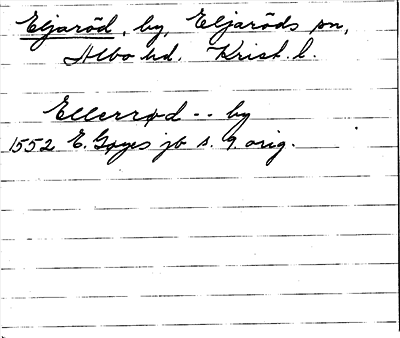 Eljaröd, by, Eljaröds sn,
Albo hd. Krist. l.
Ellerrød -- by
1552 E. Gøyes jb s. 9 orig.